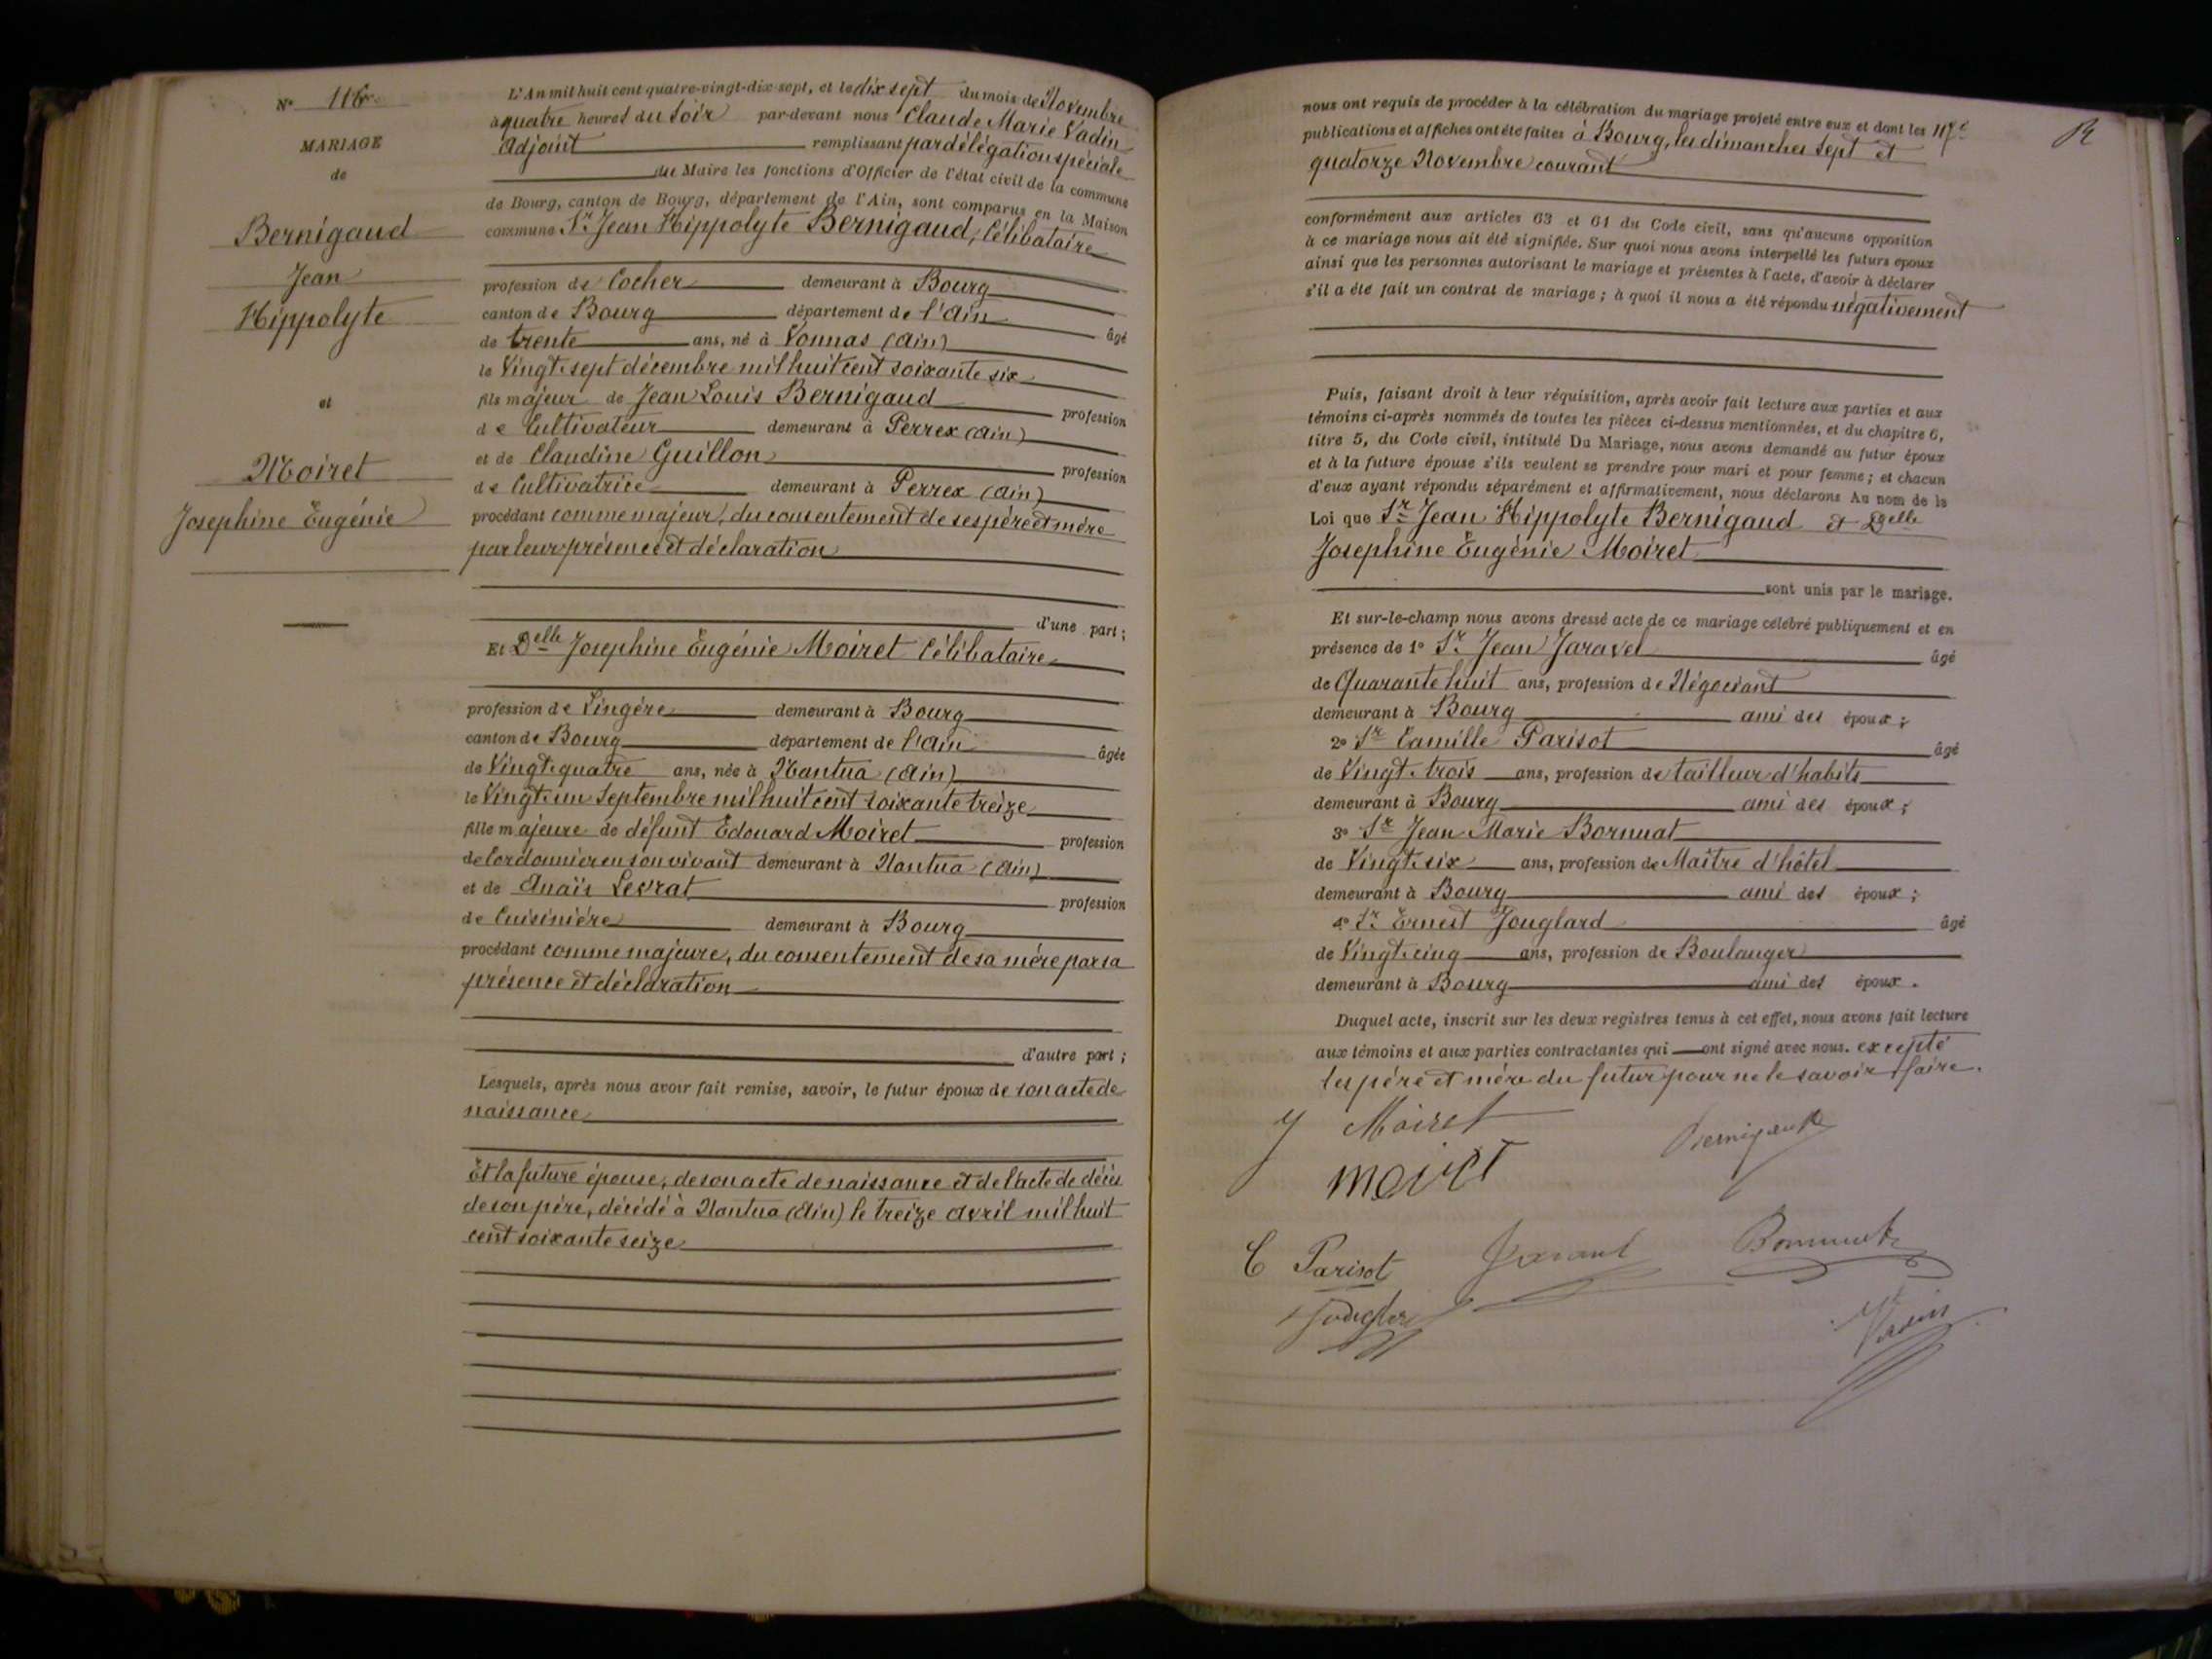 N° 116
MARIAGE
de
Bernigaud
Jean
Hippolyte
et
Moiret
Josephine Eugénie
L'An mil huit cent quatre-vingt-dix-sept, et le dix sept du mois de Novembre
à quatre heures du soir par-devant nous Claude Marie Vadin
Adjoint remplissant par délégation spéciale
du Maire les fonctions d'Officier de l'état civil de la commune
de Bourg, canton de Bourg, département de l'Ain, sont comparus en la Maison
commune Sr Jean Hippolyte Bernigaud, Célibataire
profession de Cocher demeurant à Bourg
canton de Bourg département de l'Ain âgé
de trente ans, né à Vonnas (Ain)
le Vingt-sept décembre mil huit cent soixante six
fils majeur de Jean Louis Bernigaud profession
de Cultivateur demeurant à Perrex (Ain)
et de Claudine Guillon profession
de Cultivatrice demeurant à Perrex (Ain)
procédant comme majeur, du consentement de ses père et mère
par leur présence et déclaration
d'une part ;
Et Delle Josephine Eugénie Moiret Célibataire
profession de Lingère demeurant à Bourg
canton de Bourg département de l'Ain âgée
de Vingt-quatre ans, née à Nantua (Ain)
le Vingt-un Septembre mil huit cent soixante treize
fille majeure de défunt Edouard Moiret profession
de Cordonnier en son vivant demeurant à Nantua (Ain)
et de Anaïs Levrat profession
de Cuisinière demeurant à Bourg
procédant comme majeure, du consentement de sa mère par sa
présence et déclaration
d'autre part ;
Lesquels, après nous avoir fait remise, savoir, le futur époux de son acte de
naissance
Et la future épouse, de son acte de naissance et de l'acte de décès
de son père, décédé à Nantua (Ain) le treize avril mil huit
cent soixante seize
nous ont requis de procéder à la célébration du mariage projeté entre eux et dont les
publications et affiches ont été faites à Bourg, les dimanches Sept et
quatorze Novembre courant
conformément aux articles 63 et 64 du Code civil, sans qu'aucune opposition
à ce mariage nous ait été signifiée. Sur quoi nous avons interpellé les futurs époux
ainsi que les personnes autorisant le mariage et présentes à l'acte, d'avoir à déclarer
s'il a été fait un contrat de mariage ; à quoi il nous a été répondu négativement
Puis, faisant droit à leur réquisition, après avoir fait lecture aux parties et aux
témoins ci-après nommés de toutes les pièces ci-dessus mentionnées, et du chapitre 6,
titre 5, du Code civil, intitulé Du Mariage, nous avons demandé au futur époux
et à la future épouse s'ils veulent se prendre pour mari et pour femme ; et chacun
d'eux ayant répondu séparément et affirmativement, nous déclarons Au nom de la
Loi que Sr Jean Hippolyte Bernigaud et Delle
Josephine Eugénie Moiret
sont unis par le mariage.
Et sur-le-champ nous avons dressé acte de ce mariage célébré publiquement et en
présence de 1° Sr Jean Jaravel âgé
de Quarante huit ans, profession de Négociant
demeurant à Bourg ami des époux ;
2° Sr Camille Parisot âgé
de Vingt-trois ans, profession de tailleur d'habits
demeurant à Bourg ami des époux ;
3° Sr Jean Marie Bornuat
de Vingt-six ans, profession de Maître d'hôtel
demeurant à Bourg ami des époux ;
4° Sr Ernest Jouglard âgé
de Vingt-cinq ans, profession de Boulanger
demeurant à Bourg ami des époux.
Duquel acte, inscrit sur les deux registres tenus à cet effet, nous avons fait lecture
aux témoins et aux parties contractantes qui ont signé avec nous. excepté
les père et mère du futur pour ne le savoir faire.
J Moiret
Bernigaud
Moiret
C Parisot